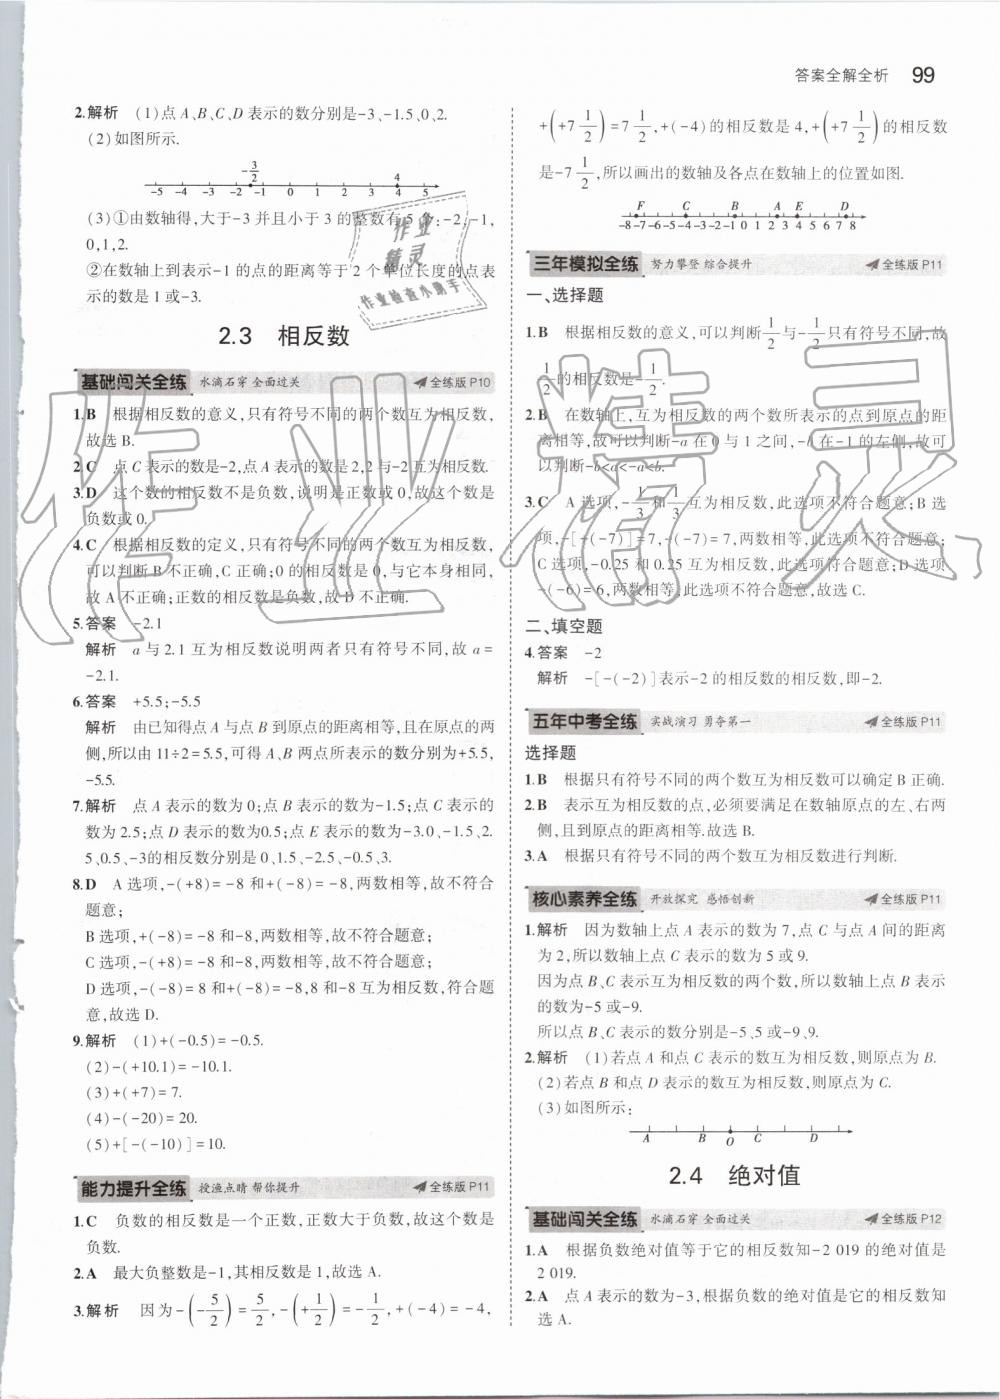 答案全解全析 99
2.解析 (1)点A、B、C、D表示的数分别是-3、-1.5、0、2.
(2)如图所示.
-3/2
-5 -4 -3 -2 -1 0 1 2 3 4 5
(3)①由数轴得,大于-3并且小于3的整数有5个:-2,-1,
0,1,2.
②在数轴上到表示-1的点的距离等于2个单位长度的点表
示的数是1或-3.
2.3 相反数
基础闯关全练 水滴石穿 全面过关 全练版P10
1.B 根据相反数的意义,只有符号不同的两个数互为相反数,
故选B.
2.C 点C表示的数是-2,点A表示的数是2,2与-2互为相反数.
3.D 这个数的相反数不是负数,说明是正数或0,故这个数是
负数或0.
4.C 根据相反数的定义,只有符号不同的两个数互为相反数,
可以判断B不正确,C正确;0的相反数是0,与它本身相同,
故A不正确;正数的相反数是负数,故D不正确.
5.答案 -2.1
解析 a与2.1互为相反数说明两者只有符号不同,故a=
-2.1.
6.答案 +5.5;-5.5
解析 由已知得点A与点B到原点的距离相等,且在原点的两
侧,所以由11÷2=5.5,可得A、B两点所表示的数分别为+5.5,
-5.5.
7.解析 点A表示的数为0;点B表示的数为-1.5;点C表示的
数为2.5;点D表示的数为0.5;点E表示的数为-3.0、-1.5、2.
5、0.5、-3的相反数分别是0、1.5、-2.5、-0.5、3.
8.D A选项,-(+8)=-8和+(-8)=-8,两数相等,故不符合
题意;
B选项,+(-8)=-8和-8,两数相等,故不符合题意;
C选项,-(-8)=8和+(+8)=8,两数相等,故不符合题意;
D选项,-(-8)=8和+(-8)=-8,8和-8互为相反数,符合题
意,故选D.
9.解析 (1)+(-0.5)=-0.5.
(2)-(+10.1)=-10.1.
(3)+(+7)=7.
(4)-(-20)=20.
(5)+[-(-10)]=10.
能力提升全练 授渔点睛 帮你提升 全练版P11
1.C 负数的相反数是一个正数,正数大于负数,故这个数是
负数.
2.A 最大负整数是-1,其相反数是1,故选A.
3.解析 因为-(-5/2)=5/2,-(+1/2)=-1/2,+(-4)=-4,
+(+7 1/2)=7 1/2,+(-4)的相反数是4,+(+7 1/2)的相反数
是-7 1/2,所以画出的数轴及各点在数轴上的位置如图.
F C B A E D
-8-7-6-5-4-3-2-1 0 1 2 3 4 5 6 7 8
三年模拟全练 努力攀登 综合提升 全练版P11
一、选择题
1.B 根据相反数的意义,可以判断1/2与-1/2只有符号不同,故
1/2的相反数是-1/2.
2.B 在数轴上,互为相反数的两个数所表示的点到原点的距
离相等,故可以判断-a在0与1之间,-b在-1的左侧,故可
以判断-b<a<-a<b.
3.C A选项,-1/3和1/3互为相反数,此选项不符合题意;B选
项,-[-(-7)]=7,-(-7)=7,两数相等,此选项不符合题意;
C选项,-0.25和0.25互为相反数,此选项符合题意;D选项,
-(-6)=6,两数相等,此选项不符合题意,故选C.
二、填空题
4.答案 -2
解析 -[-(-2)]表示-2的相反数的相反数,即-2.
五年中考全练 实战演习 勇夺第一 全练版P11
选择题
1.B 根据只有符号不同的两个数互为相反数可以确定B正确.
2.B 表示互为相反数的点,必须要满足在数轴原点的左、右两
侧,且到原点的距离相等.故选B.
3.A 根据只有符号不同的两个数互为相反数进行判断.
核心素养全练 开放探究 感悟创新 全练版P11
1.解析 因为数轴上点A表示的数为7,点C与点A间的距离
为2,所以数轴上点C表示的数为5或9.
因为点B、C表示互为相反数的两个数,所以数轴上点B表示
的数为-5或-9.
所以点B、C表示的数分别是-5、5或-9、9.
2.解析 (1)若点A和点C表示的数互为相反数,则原点为B.
(2)若点B和点D表示的数互为相反数,则原点为C.
(3)如图所示:
A B O C D
2.4 绝对值
基础闯关全练 水滴石穿 全面过关 全练版P12
1.A 根据负数绝对值等于它的相反数知-2 019的绝对值是
2 019.
2.A 点A表示的数为-3,根据负数的绝对值是它的相反数知
选A.
作业
精灵
作业检查小助手
作业精灵